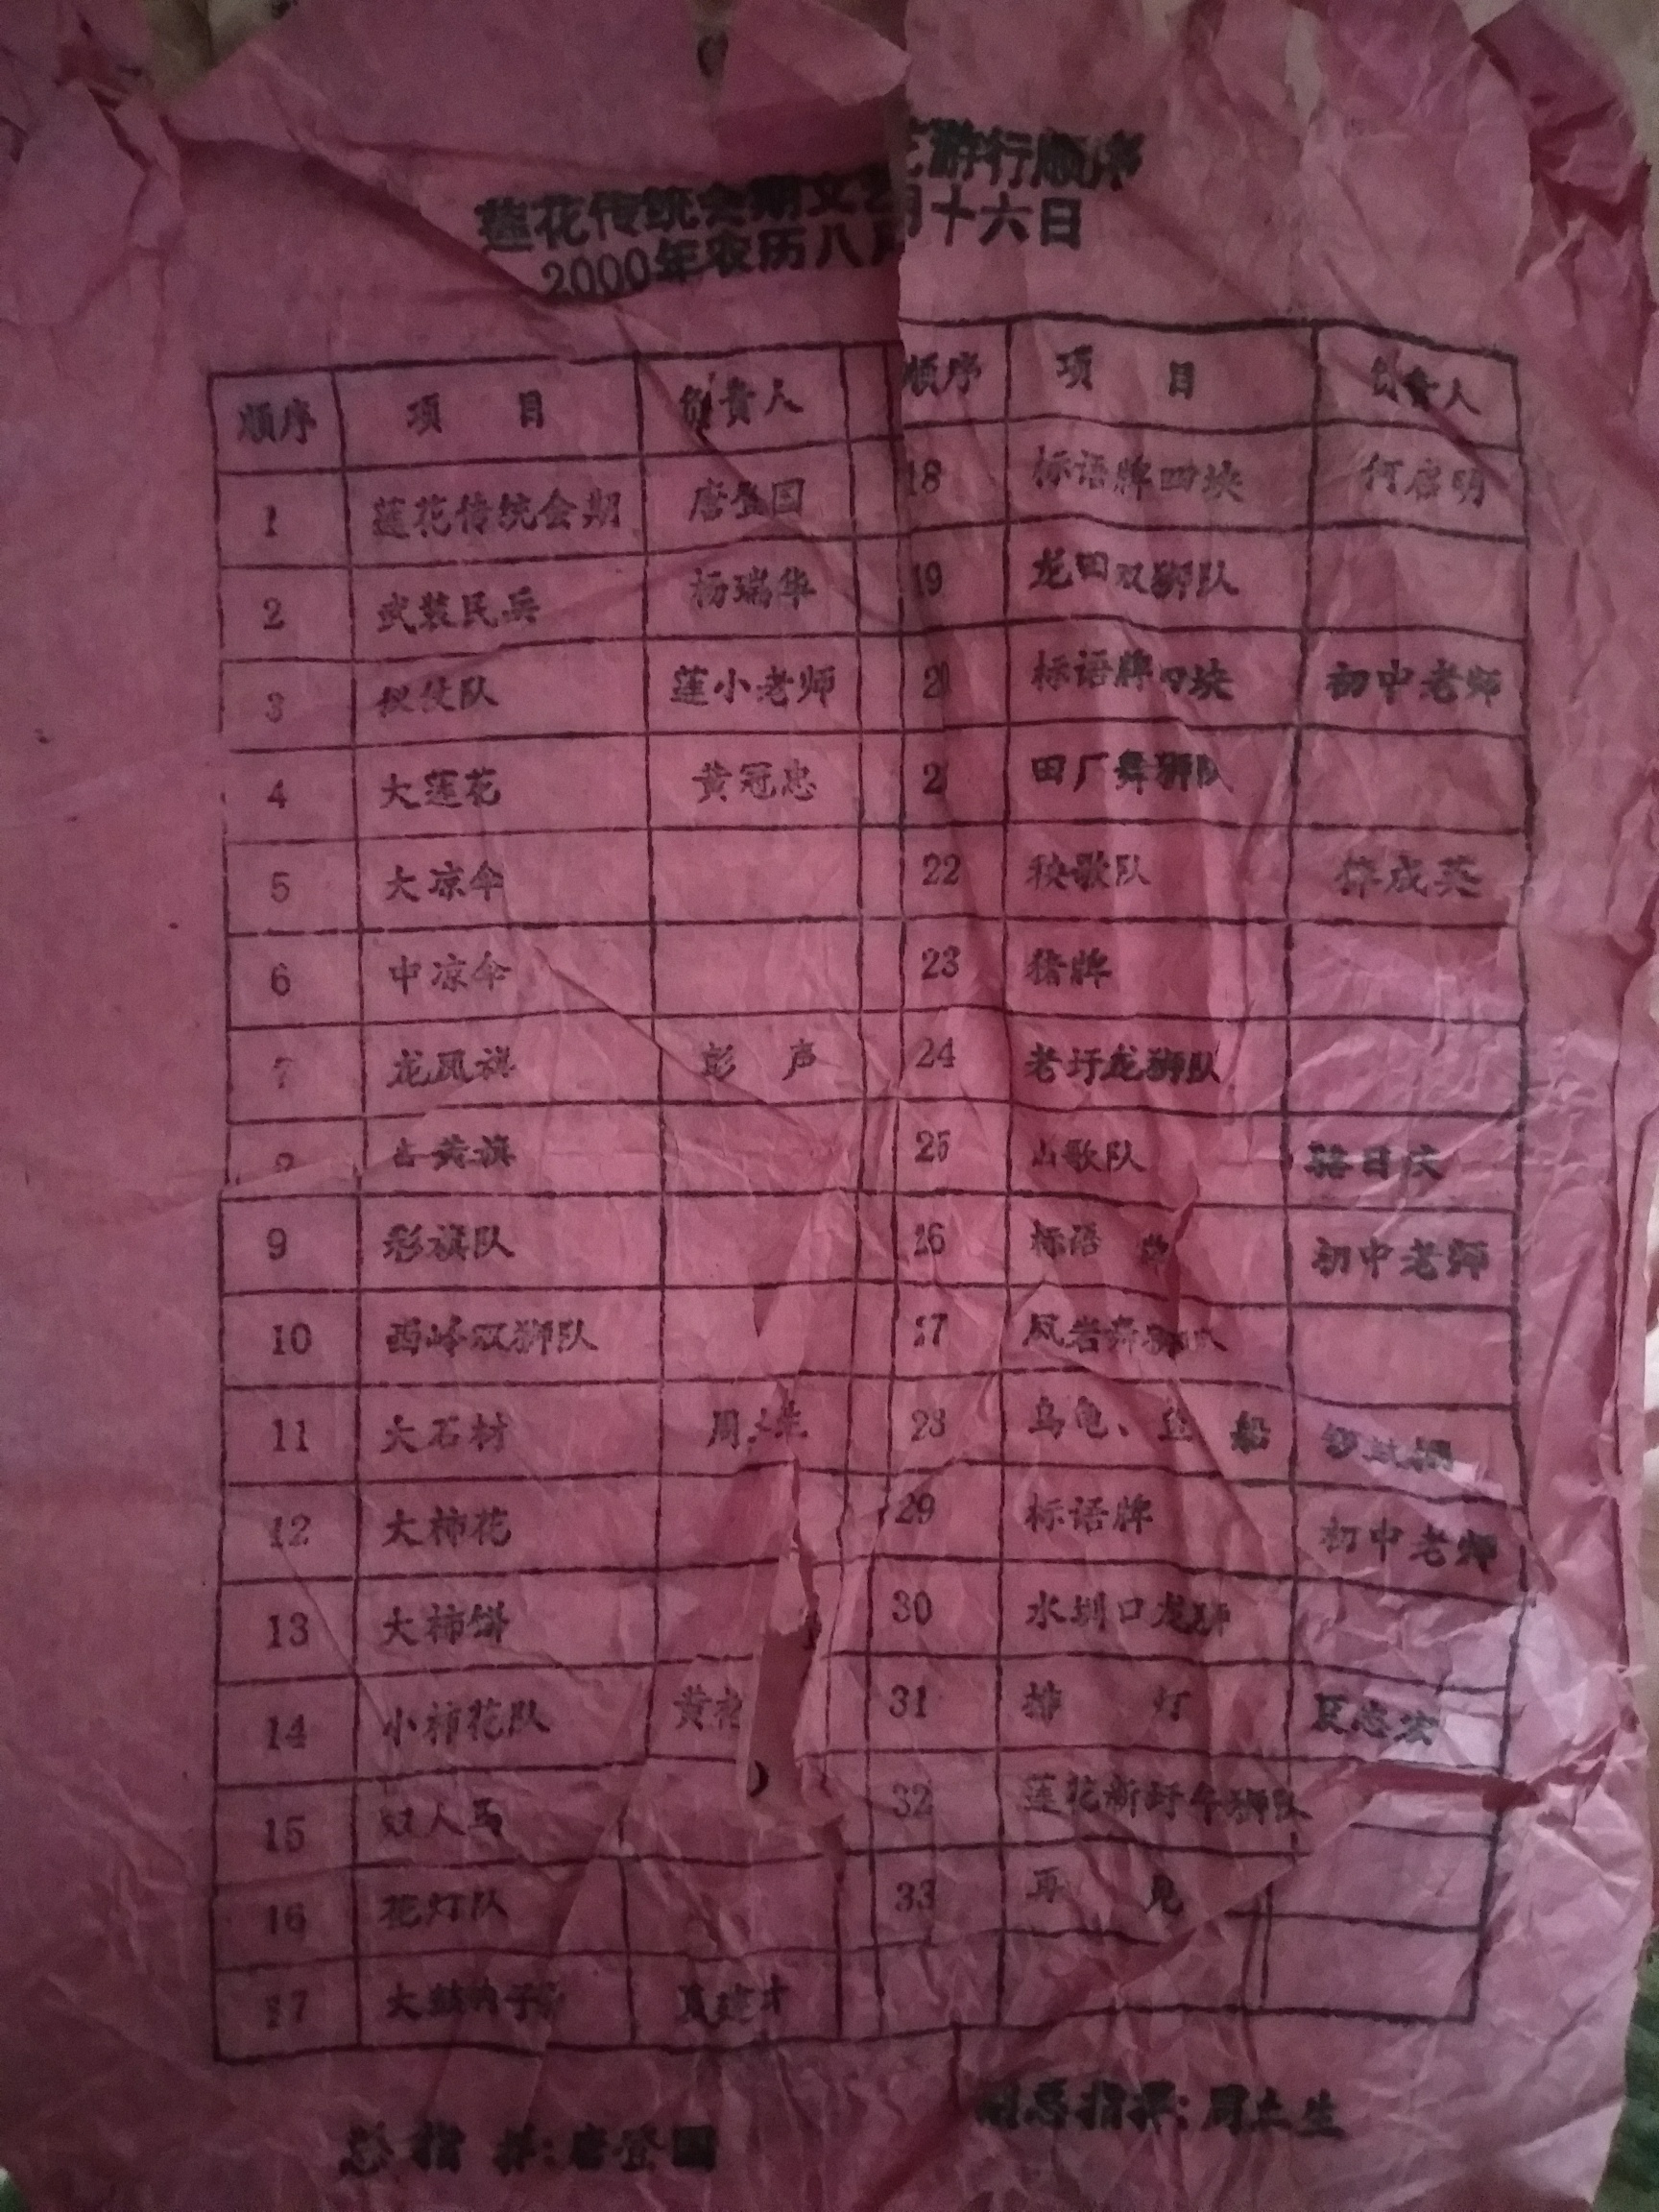 莲花传统会期文艺游行顺序
2000年农历八月十六日
顺序 项 目 负责人 顺序 项 目 负责人
1 莲花传统会期 唐登国 18 标语牌四块 何启明
2 武装民兵 杨瑞华 19 龙田双狮队
3 仪仗队 莲小老师 20 标语牌四块 初中老师
4 大莲花 黄冠忠 2 田厂舞狮队
5 大凉伞 22 秧歌队 成英
6 中凉伞 23 猪牌
7 龙凤旗 彭 声 24 老圩龙狮队
黄旗 25 山歌队 日庆
9 彩旗队 26 标语 初中老师
10 西岭双狮队 27 凤岩舞狮队
11 大石材 周 生 28 乌龟、 船
12 大柿花 29 标语牌 初中老师
13 大柿饼 30 水圳口龙狮
14 小柿花队 黄 31 排 灯 夏忠宏
15 双人马 32 莲花新圩牛狮队
16 花灯队 33 再 见
17 大鼓 子 莫建才
总指挥:唐登国 副总指挥:周土生